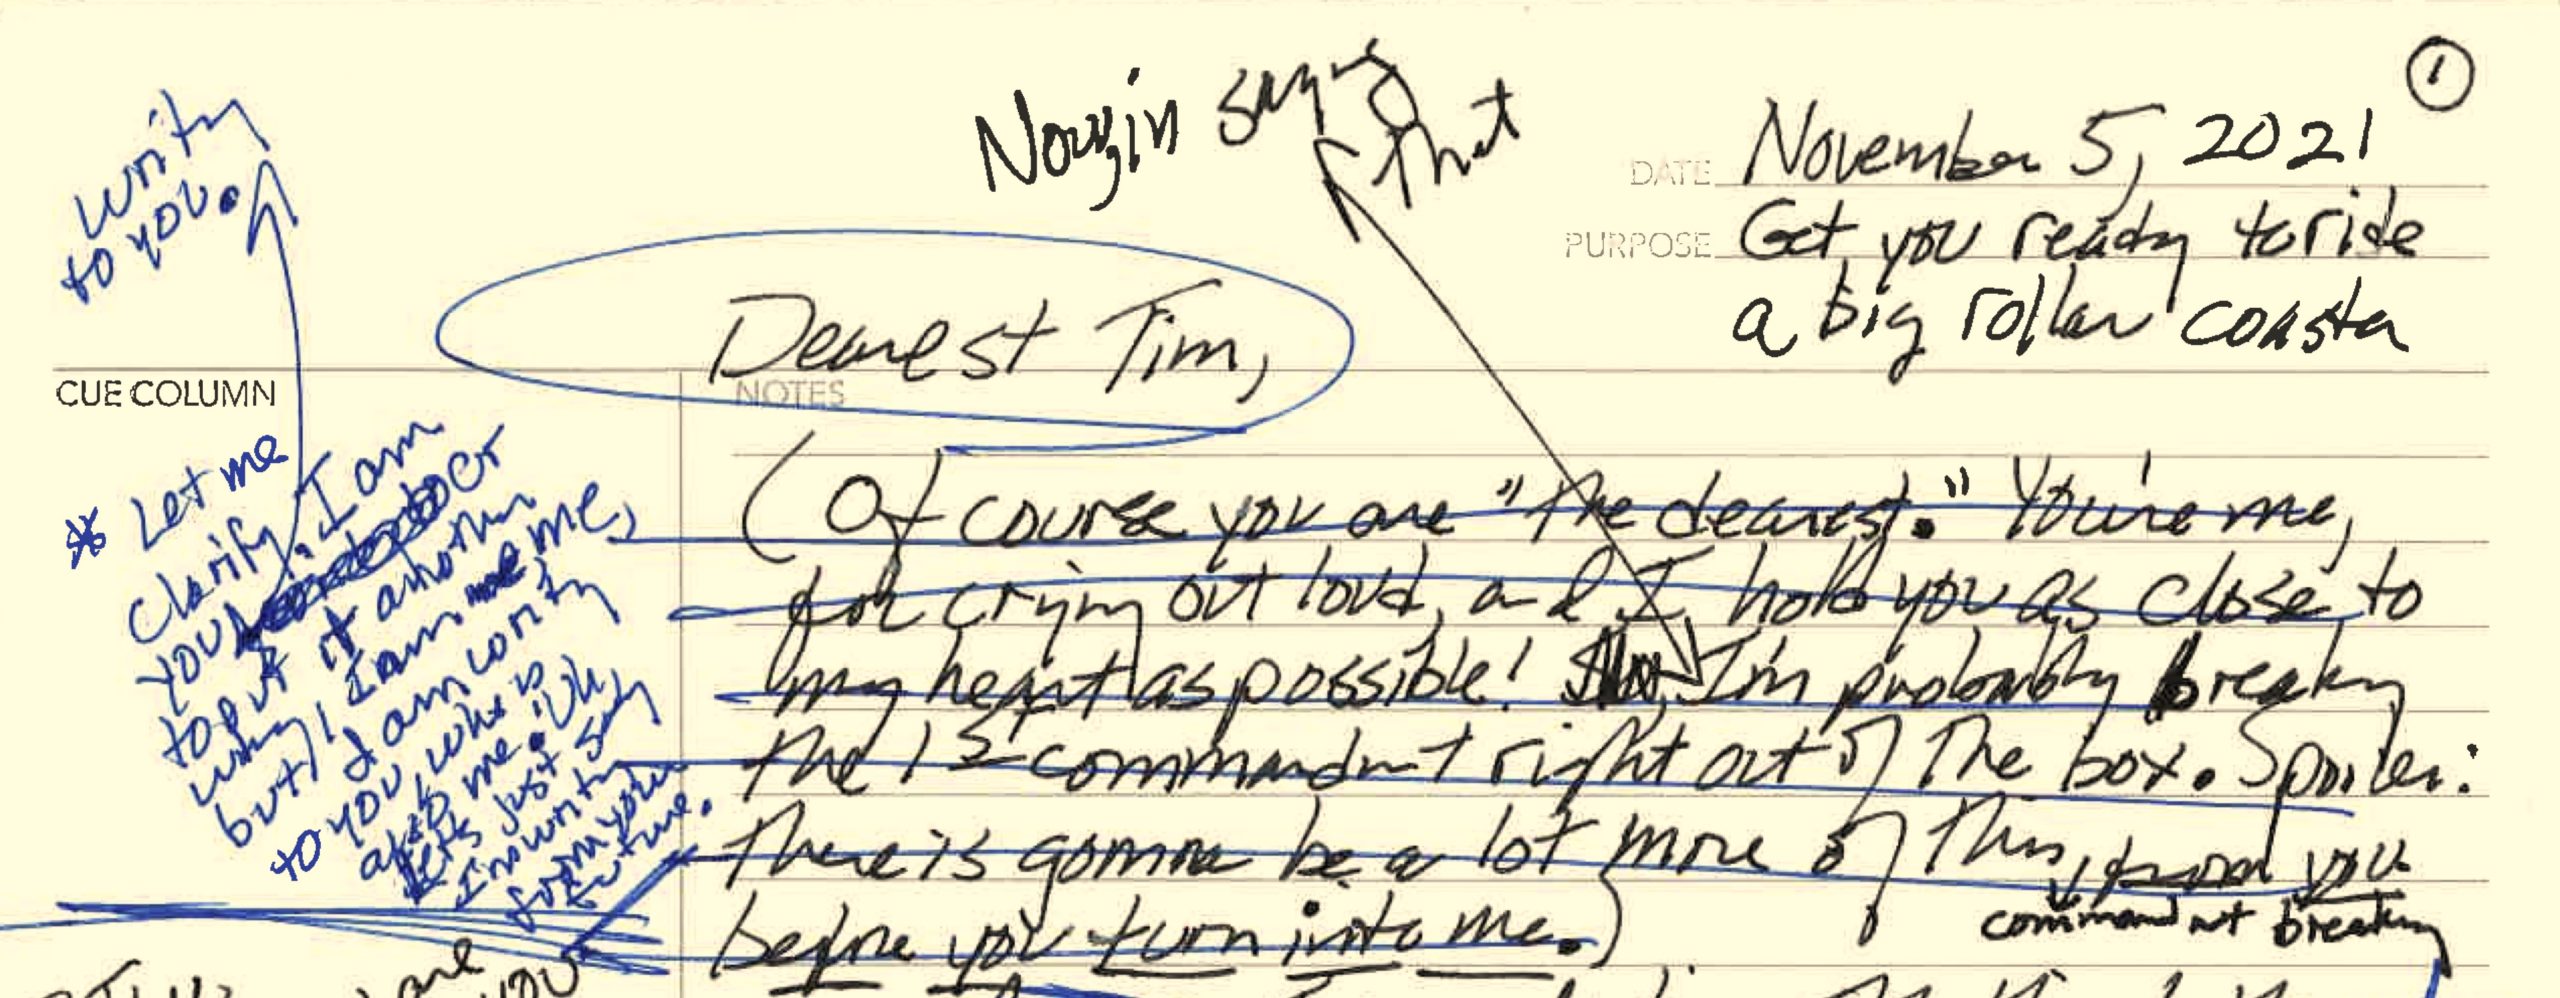 1
November 5, 2021
DATE
Get you ready to ride
PURPOSE
a big roller coaster
says
that
Dearest Tim,
NOTES
(Of course you are "the dearest." You're me,
for crying out loud, and I hold you as close to
my heart as possible! I'm probably breaking
the 1st commandmnt right out of the box. Spoiler:
There is gonna be a lot more of this, from you
commandmnt breaking
before you turn into me.)
CUE COLUMN
* Let me
clarify. I am
you. Or
to put it another
way, I am me,
but I am writing
to you, who is
also me. Uh,
let's just say
I'm writing
from your
future.
writing
to you.
are
you